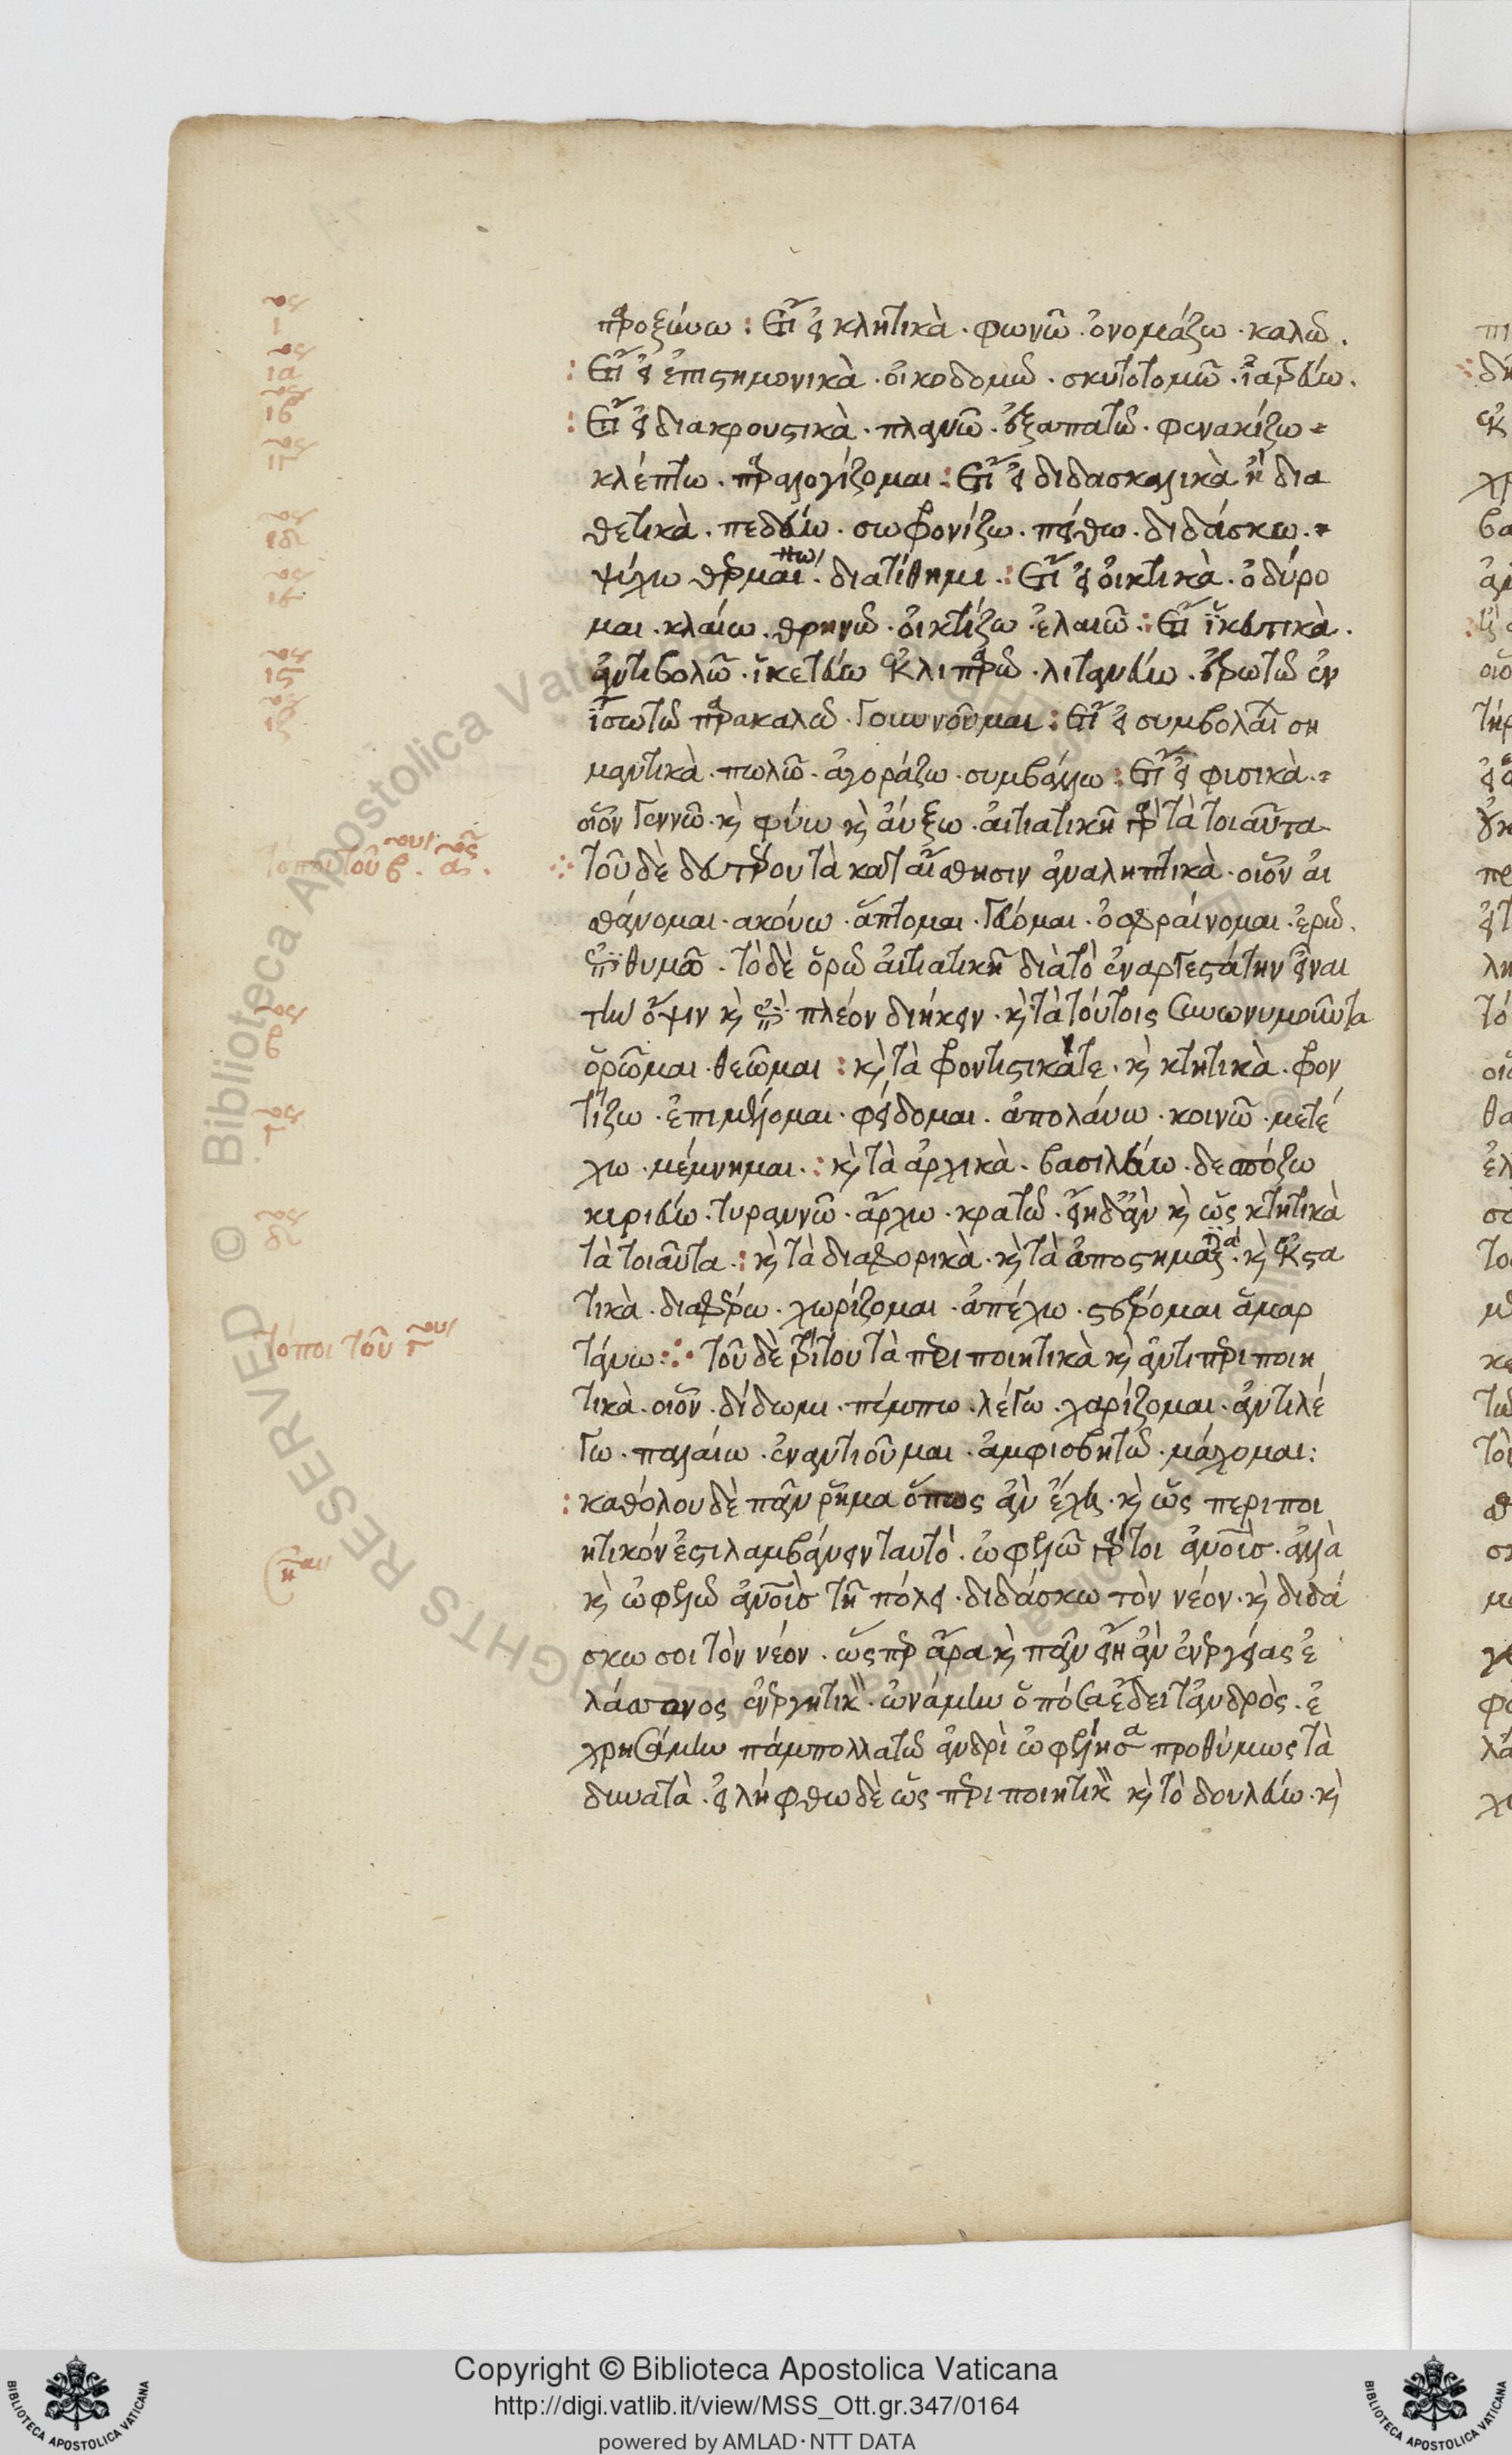 παροξύνω : ἔτι εἰ κλητικὰ · φωνῶ · ὀνομάζω · καλῶ ·
: ἔτι εἰ ἐπιστημονικὰ · οἰκοδομῶ · σκυτοτομῶ · ἰατρεύω ·
: ἔτι εἰ διακρουστικὰ · πλανῶ · ἐξαπατῶ · φενακίζω =
κλέπτω · παραλογίζομαι : ἔτι εἰ διδασκαλικὰ ἢ δια
θετικὰ · πεδεύω · σωφρονίζω · πείθω · διδάσκω · =
ψύχω θερμαίνω · διατίθημι · : ἔτι εἰ οἰκτικὰ · ὀδύρο
μαι · κλαίω · θρηνῶ · οἰκτίζω · ἐλαιῶ · : ἔτι ἱκευτικὰ ·
ἀντιβολῶ · ἱκετεύω ἐκλιπαρῶ · λιτανεύω · ἐρωτῶ ἐν
ἱσωτῶ παρακαλῶ · γουνοῦμαι : ἔτι εἰ συμβολαι ση
μαντικὰ · πωλῶ · ἀγοράζω · συμβάλλω : ἔτι εἰ φισικὰ · =
οἷον γεννῶ · κὶ φύω κὶ αὔξω · αἰτιατικῆ παρὰ τὰ τοιαῦτα
τόποι τοῦ β · ας ·
τοῦ δὲ δευτέρου τὰ κατ αἴσθησιν ἀναληπτικὰ · οἷον αἰ
σθάνομαι · ακούω · ἅπτομαι · γεύομαι · ὀσφραίνομαι · ἐρῶ ·
ἐπιθυμῶ · τὸ δὲ ὁρῶ αἰτιατικῆ διὰ τὸ ἐναργεστάτην εἶναι
τὴν ὄψιν κὶ ἐπὶ πλέον διήκειν · κὶ τὰ τούτοις συνωνυμοῦντα
ὁρῶμαι · θεῶμαι : κὶ τὰ φροντιστικά τε · κὶ κτητικὰ · φρον
τίζω · ἐπιμέλομαι · φείδομαι · ἀπολάυω · κοινῶ · μετέ
χω · μέμνημαι · : κὶ τὰ ἀρχικὰ · βασιλεύω · δεσπόζω
κυριεύω · τυραννῶ · ἄρχω · κρατῶ · εἴη δ ἂν κὶ ὡς κτητικὰ
τὰ τοιαῦτα · : κὶ τὰ διαφορικὰ · κὶ τὰ ἀποστηματικά · κὶ ἐκστα
τικὰ · διαφέρω · χωρίζομαι · ἀπέχω · στερόμαι ἁμαρ
τόποι τοῦ γ
τάνω : · τοῦ δὲ τρίτου τὰ περιποιητικὰ κὶ ἀντιπεριποιη
τικὰ · οἷον · δίδωμι · πέμπω · λέγω · χαρίζομαι · ἀντιλέ
γω · παλαίω · ἐναντιοῦμαι · ἀμφισβητῶ · μάχομαι :
: καθόλου δὲ πᾶν ῥῆμα ὅπως ἂν ἔχης · κὶ ὡς περιποι
ητικόν ἐστι λαμβάνειν ταυτὸ ·
κὶ ὠφελῶ τῆ πόλει · διδάσκω τὸν νέον · κὶ διδά
σκω σοι τὸν νέον · ὥσπερ ἄρα κὶ πᾶν εἴη ἂν ἐνεργείας ἐ
λάσσονος ἐνεργητικ · ὠνάμην ὁπόσα ἔδει τἀνδρὸς · ἐ
χρησάμην πάμπολλα τῶ ἀνδρὶ ὠφέλησα προθύμως τὰ
δυνατὰ · εἰλήφθω δὲ ὡς περιποιητικ κὶ τὸ δουλεύω · κὶ
Copyright © Biblioteca Apostolica Vaticana
http://digi.vatlib.it/view/MSS_Ott.gr.347/0164
powered by AMLAD · NTT DATA